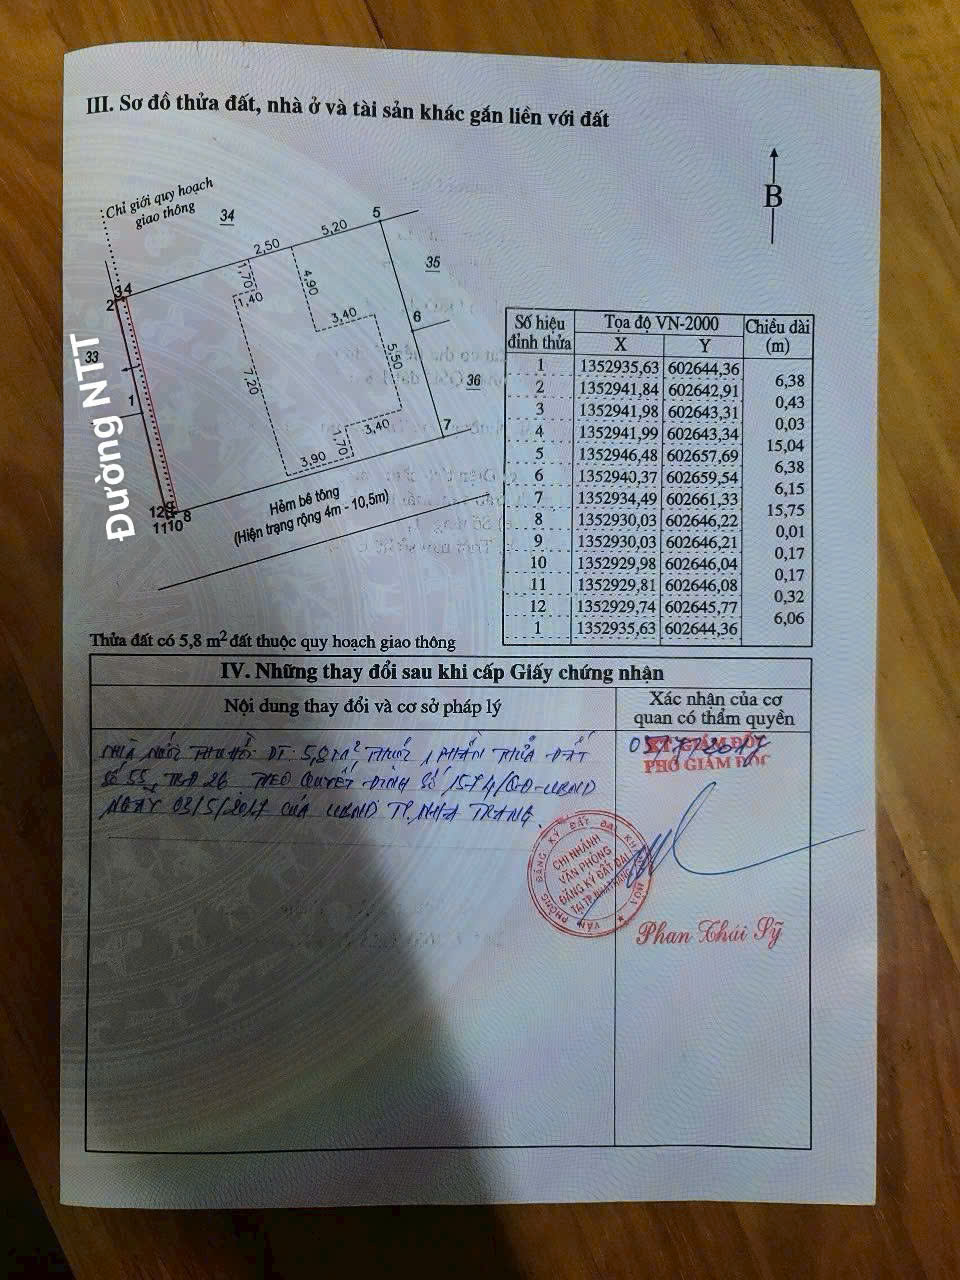 III. Sơ đồ thửa đất, nhà ở và tài sản khác gắn liền với đất
B
Chỉ giới quy hoạch
giao thông
34
5
5,20
2,50
1,70
1,40
4,90
3,40
35
6
2
3
4
33
1
7,20
5,50
36
3,40
1,70
3,90
7
Đường NTT
12
9
8
11
10
Hẻm bê tông
(Hiện trạng rộng 4m - 10,5m)
Số hiệu đỉnh thửa | Tọa độ VN-2000 | Chiều dài (m)
X | Y
1 1352935,63 602644,36
6,38
2 1352941,84 602642,91
0,43
3 1352941,98 602643,31
0,03
4 1352941,99 602643,34
15,04
5 1352946,48 602657,69
6,38
6 1352940,37 602659,54
6,15
7 1352934,49 602661,33
15,75
8 1352930,03 602646,22
0,01
9 1352930,03 602646,21
0,17
10 1352929,98 602646,04
0,17
11 1352929,81 602646,08
0,32
12 1352929,74 602645,77
6,06
1 1352935,63 602644,36
Thửa đất có 5,8 m² đất thuộc quy hoạch giao thông
IV. Những thay đổi sau khi cấp Giấy chứng nhận
Nội dung thay đổi và cơ sở pháp lý
Xác nhận của cơ
quan có thẩm quyền
NHÀ NƯỚC THU HỒI DT: 5,8 m², THUỘC 1 PHẦN THỬA ĐẤT
SỐ 55, TBĐ 26 THEO QUYẾT ĐỊNH SỐ 1574/QĐ-UBND
NGÀY 03/5/2017 CỦA UBND TP. NHA TRANG.
KT. GIÁM ĐỐC
PHÓ GIÁM ĐỐC
VĂN PHÒNG ĐĂNG KÝ ĐẤT ĐAI KHÁNH HÒA
CHI NHÁNH
VĂN PHÒNG
ĐĂNG KÝ ĐẤT ĐAI
TẠI TP. NHA TRANG
Phan Thái Sỹ